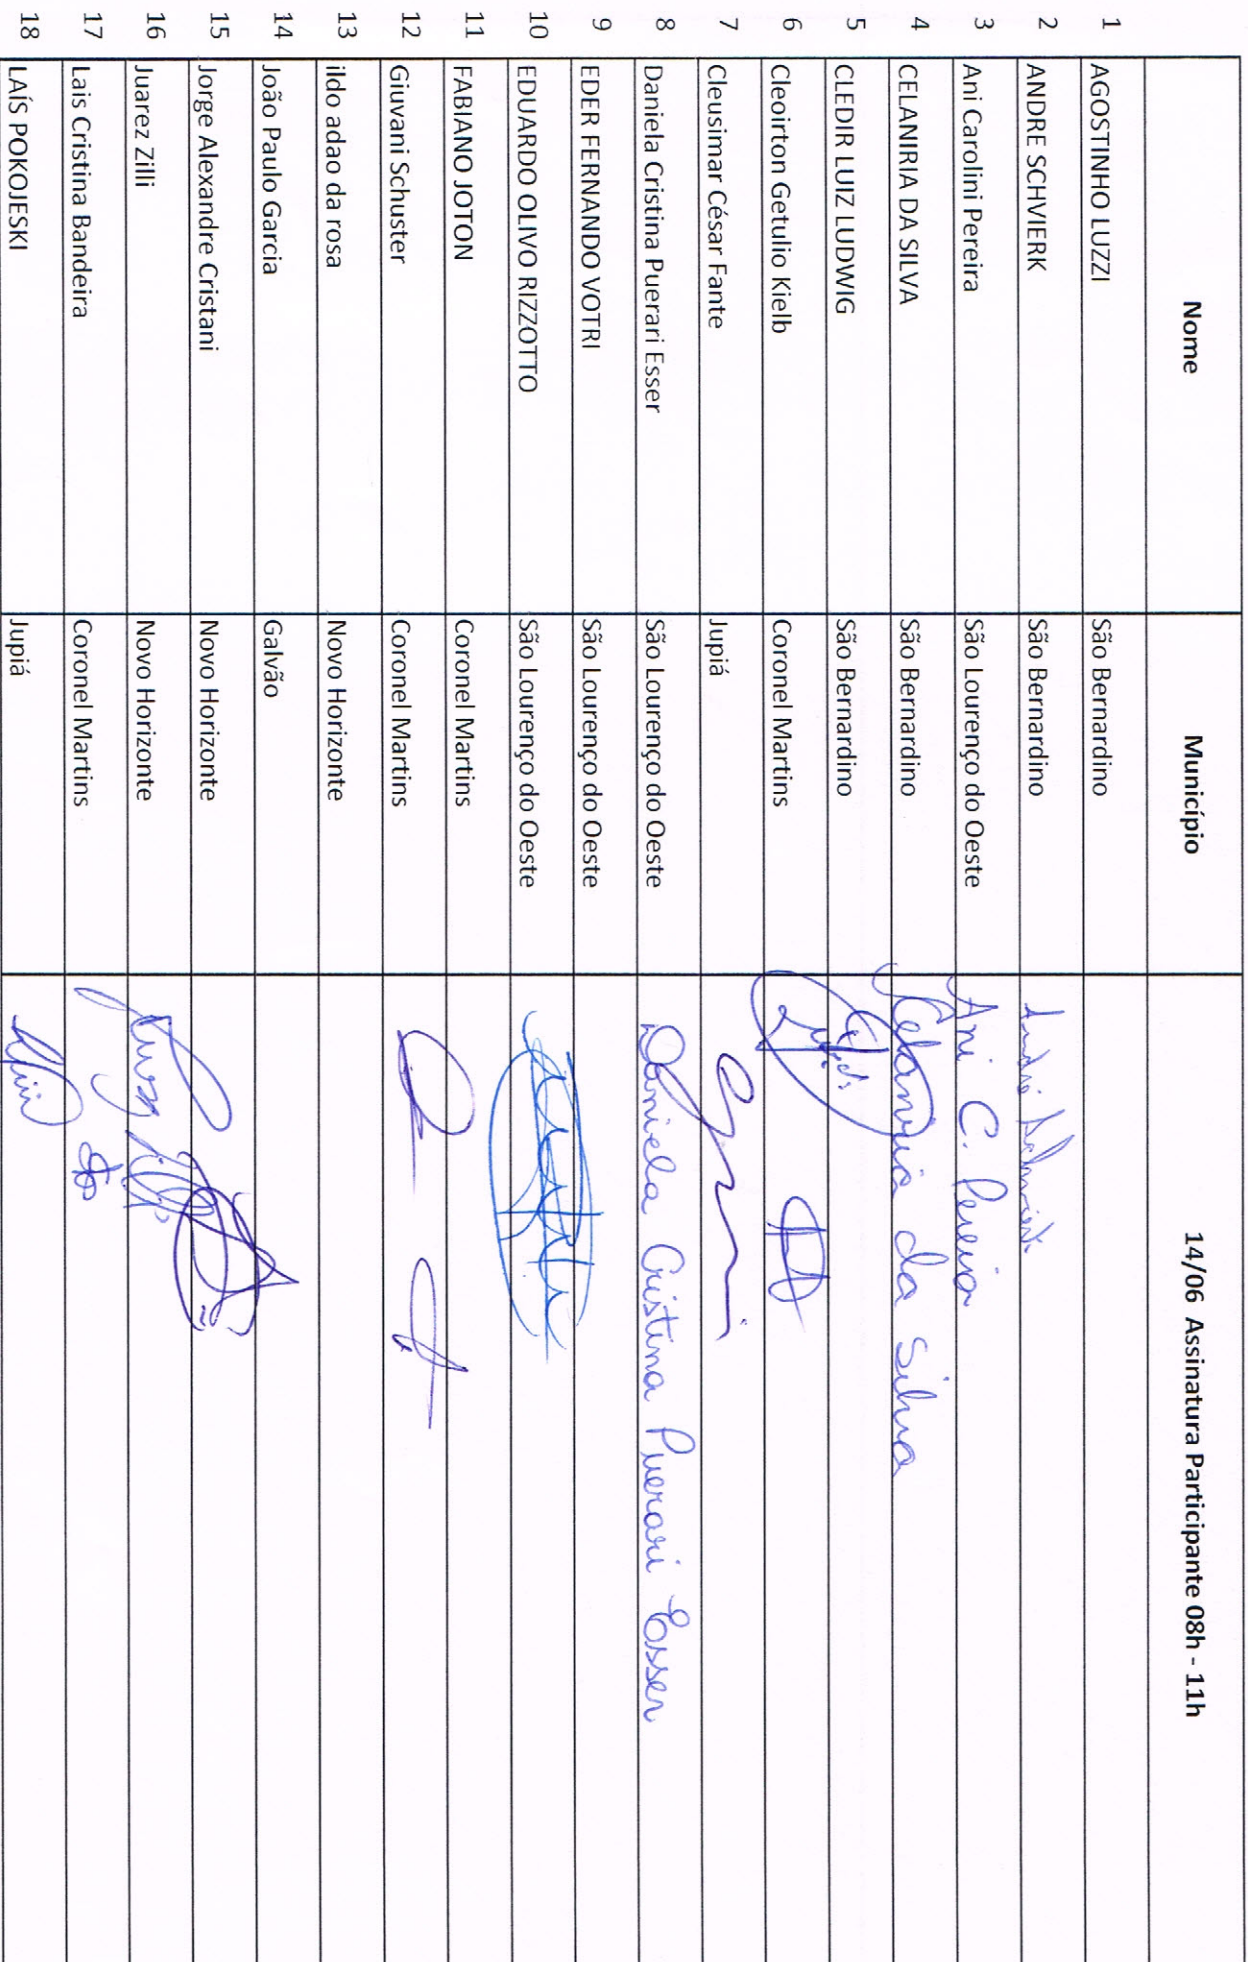 Nome Município 14/06 Assinatura Participante 08h - 11h
1 AGOSTINHO LUZZI São Bernardino
2 ANDRE SCHVIERK São Bernardino
3 Ani Carolini Pereira São Lourenço do Oeste Ani C. Pereira
4 CELANIRIA DA SILVA São Bernardino Celaniria da Silva
5 CLEDIR LUIZ LUDWIG São Bernardino
6 Cleoirton Getulio Kielb Coronel Martins
7 Cleusimar César Fante Jupiá
8 Daniela Cristina Puerari Esser São Lourenço do Oeste Daniela Cristina Puerari Esser
9 EDER FERNANDO VOTRI São Lourenço do Oeste
10 EDUARDO OLIVO RIZZOTTO São Lourenço do Oeste
11 FABIANO JOTON Coronel Martins
12 Giuvani Schuster Coronel Martins
13 ildo adao da rosa Novo Horizonte
14 João Paulo Garcia Galvão
15 Jorge Alexandre Cristani Novo Horizonte
16 Juarez Zilli Novo Horizonte
17 Lais Cristina Bandeira Coronel Martins
18 LAÍS POKOJESKI Jupiá